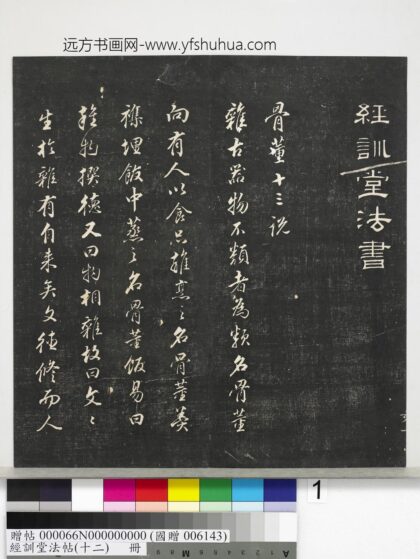 远方书画网-www.yfshuhua.com
經訓堂法書
骨董十三說
雜古器物不類者為類名骨董
向有人以食品雜烹之名骨董羹
襍埋飯中蒸之名骨董飯易曰
雜物撰德又曰物相雜故曰文文
生於雜有自来矣文德修而人
1
贈帖 000066N000000000 (國贈 006143)
經訓堂法帖(十二) 冊